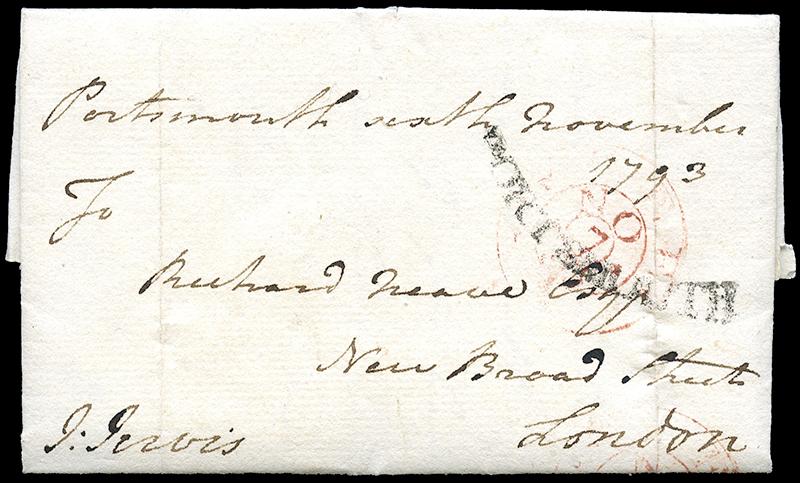 Portsmouth sixth November
1793
To
Richard Neave Esqr
New Broad Street
London
J: Jervis
PORTSMOUTH
NO
7